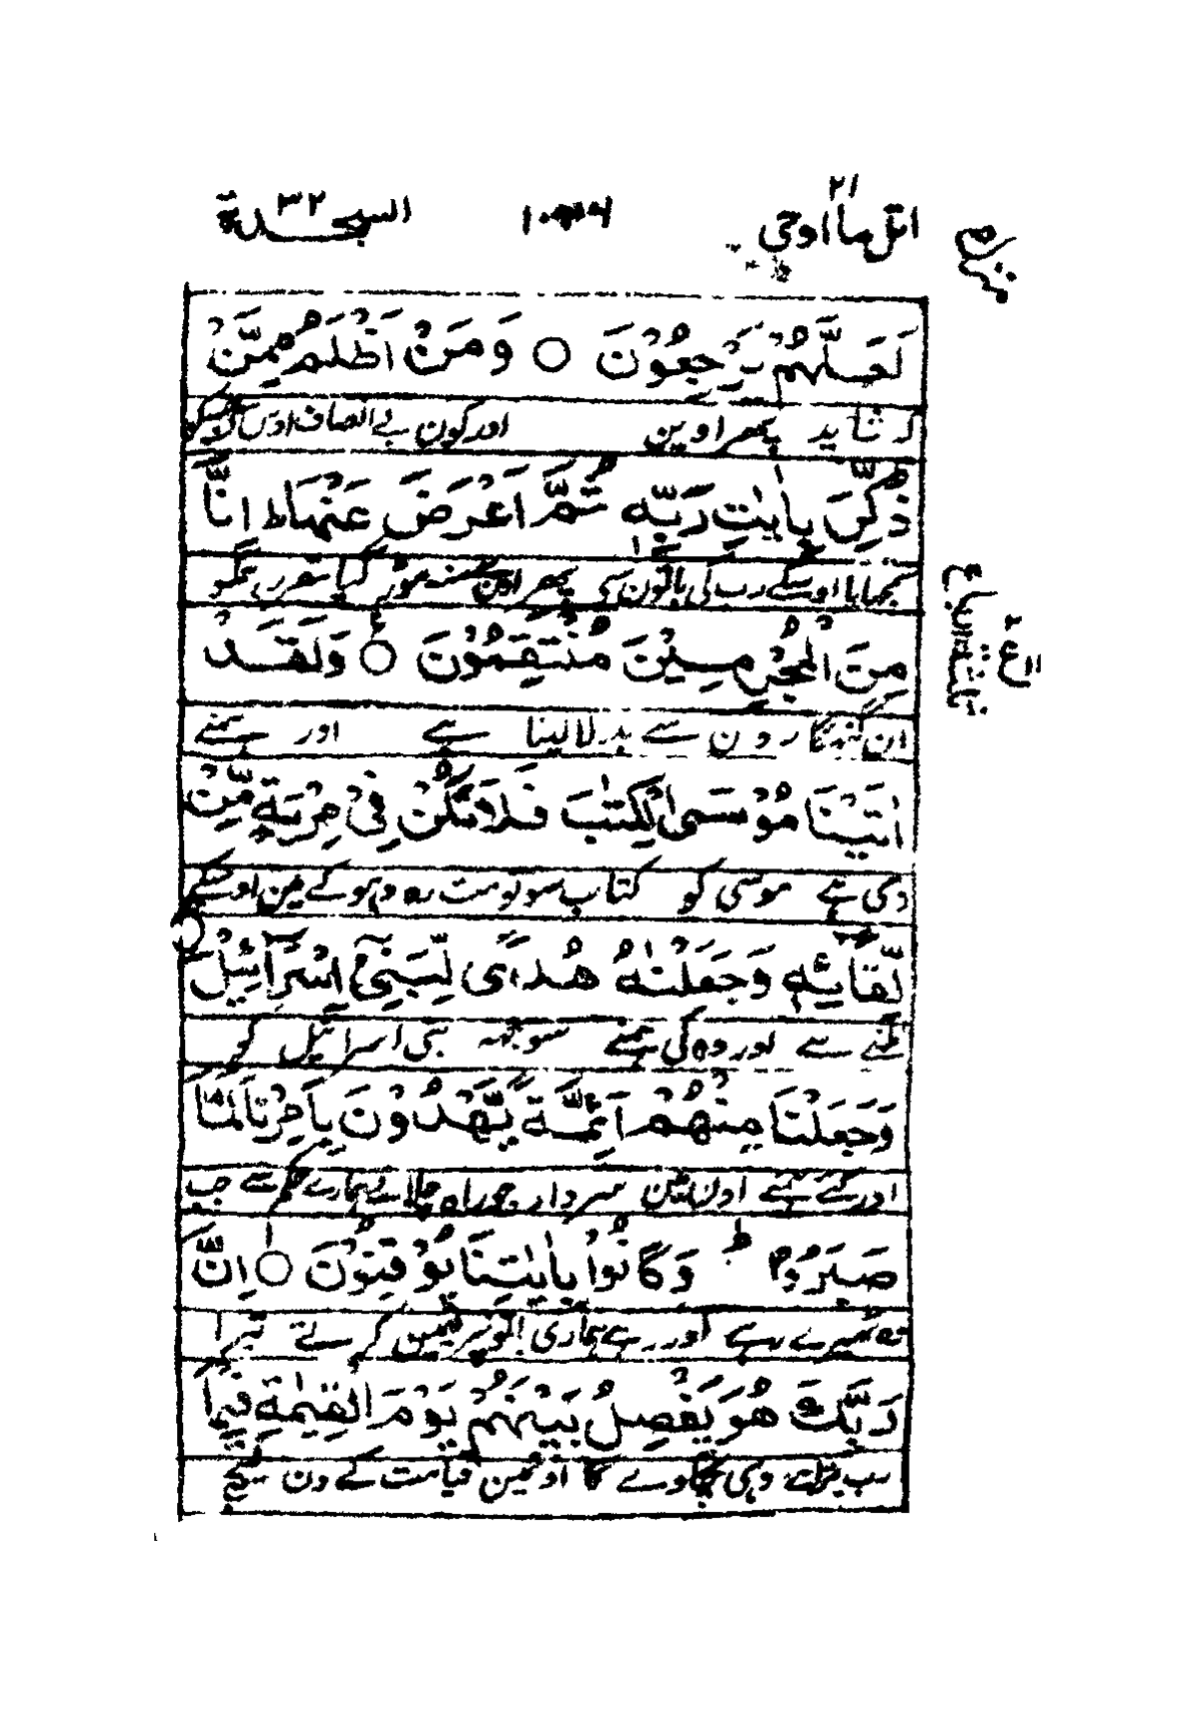 اتل ما اوحی ۲۱
السجدة ۳۲
لَعَلَّهُمْ يَرْجِعُوْنَ ○ وَمَنْ اَظْلَمُ مِمَّنْ
شاید پھر اوین اور کون بے انصاف اوس
ذُكِّرَ بِاٰيٰتِ رَبِّهٖ ثُمَّ اَعْرَضَ عَنْهَا ط اِنَّا
سمجھایا اوسکے رب کی باتون سی پھر اون منہ موڑ گیا مقرر ہمکو
مِنَ الْمُجْرِمِيْنَ مُنْتَقِمُوْنَ ○ وَلَقَدْ
ان گنہگارون سے بدلا لینا ہے اور ہمنے
اٰتَيْنَا مُوْسَى الْكِتٰبَ فَلَا تَكُنْ فِيْ مِرْيَةٍ مِّنْ
دی ہے موسی کو کتاب سو تو مت رہ دہوکے مین اوسکے
لِّقَآئِهٖ وَجَعَلْنٰهُ هُدًى لِّبَنِيْٓ اِسْرَآئِيْلَ
ملنے سے اور وہ کی ہمنے سوجھ بنی اسرائیل کو
وَجَعَلْنَا مِنْهُمْ اَئِمَّةً يَّهْدُوْنَ بِاَمْرِنَا لَمَّا
اور کئے ہمنے اونمین سردار جو راہ چلاتے ہمارے حکم سے جب
صَبَرُوْا ط وَكَانُوْا بِاٰيٰتِنَا يُوْقِنُوْنَ ○ اِنَّ
وہ ٹھیرے رہے اور رہے ہماری باتونپر یقین کرتے تیرا
رَبَّكَ هُوَ يَفْصِلُ بَيْنَهُمْ يَوْمَ الْقِيٰمَةِ فِيْمَا
رب وہی چکاوے گا اونمین قیامت کے دن